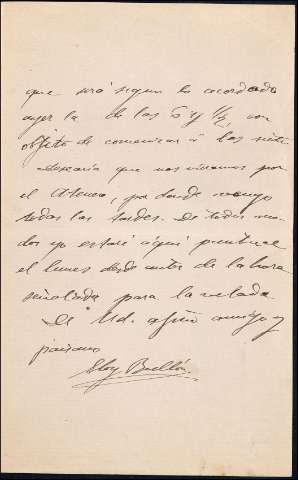 que será segun lo acordado
ayer la de las 6 y 1/2, con
objeto de comenzar á las siete
Desearía que nos viéramos por
el Ateneo, por donde vengo
todas las tardes. De todos mo-
dos yo estaré aquí puntual
el lunes desde antes de la hora
señalada para la velada.
De Ud. afmo amigo y
paisano
Eloy Bullón